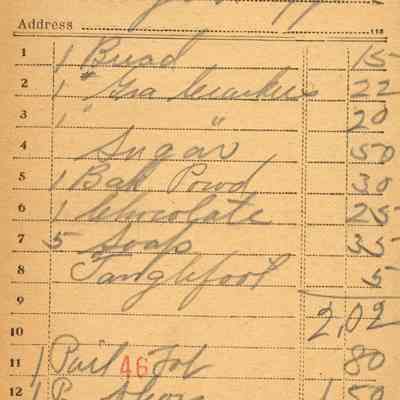 Address
1 1 Bread 15
2 1 # Gra Crackers 22
3 1 " " 20
4 Sugar 50
5 1 Bak Powd 30
6 1 Chocolate 25
7 5 Soap 35
8 Tanglefoot 5
9
10 2,02
11 1 Pail 46 80
12 1 P. 1 50